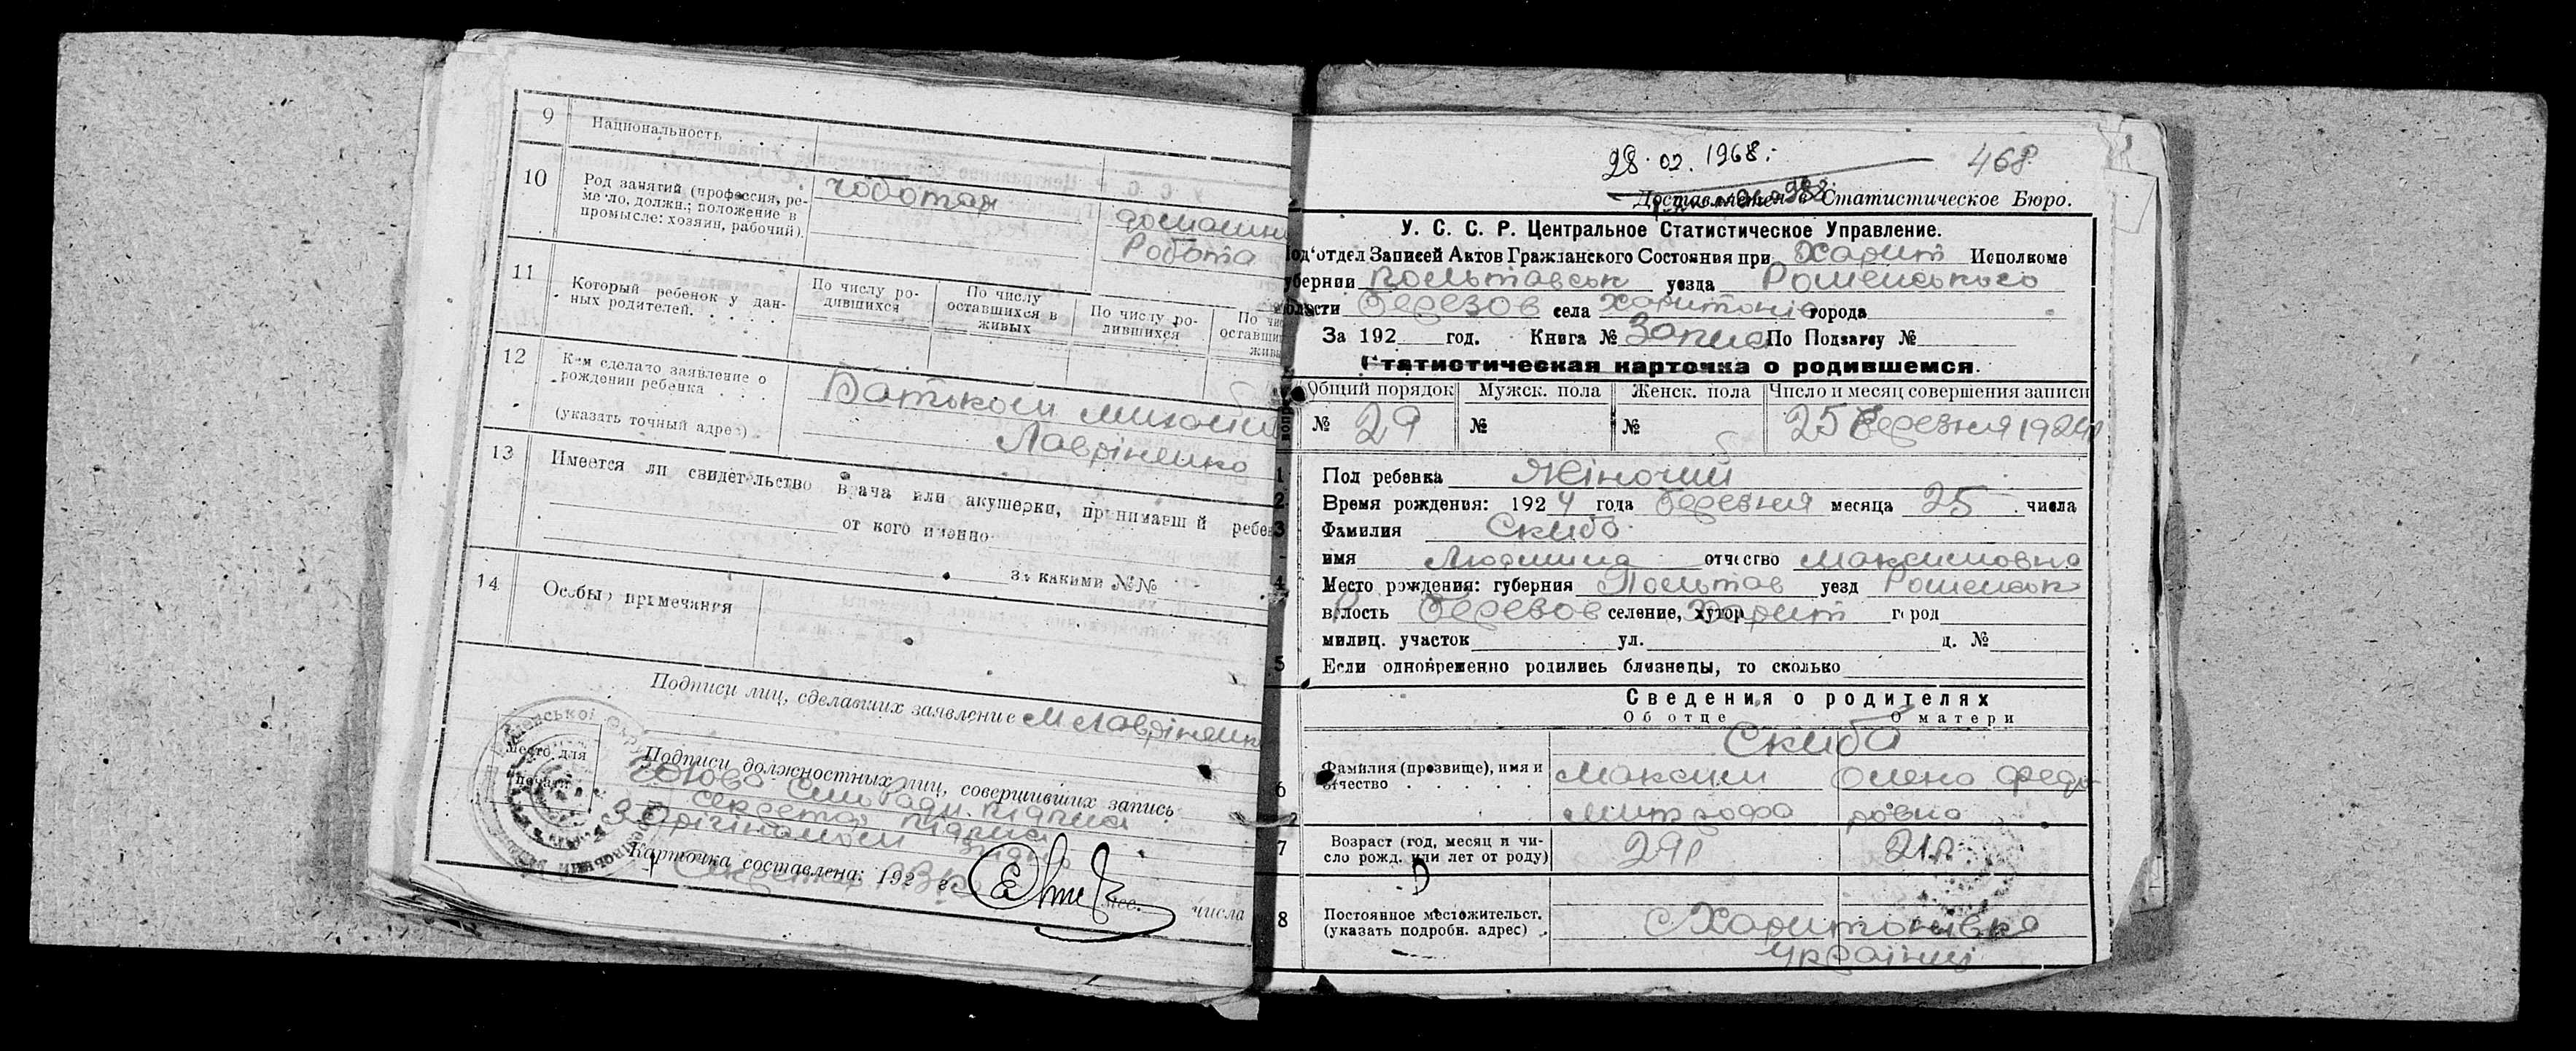 9 Национальность . . .
10 Род занятий (профессия, ре-
ме ло, должн.; положение в
промысле: хозяин, рабочий).
чоботар
домашня
Робота
11 Который ребенок у дан-
ных родителей. . . . .
По числу ро-
дившихся
По числу
оставшихся в
живых
По числу ро-
дившихся
По чис
оставши
живы
12 Кем сделано заявление о
рождении ребенка . . . .
(указать точный адрес)
Батьком
Лавріненко
13 Имеется ли свидетельство врача или акушерки, принимавшей ребен
от кого именно
за какими №№
14 Особые примечания
Подписи лиц, сделавших заявление М Лавріненк
место для
печати
Подписи должностных лиц, совершивших запись
Голова Сильради підпис
секретар підпис
З Орігіналом згідно
Карточка составлена: 192 г. мес. числа
28. 02. 1968. 468
Доставляется в Статистическое Бюро.
У. С. С. Р. Центральное Статистическое Управление.
Под'отдел Записей Актов Гражданского Состояния при Харит Исполкоме
губернии Польтавськ уезда Роменського
волости Березов села Харитонів города
За 192 год. Книга № Запис По Подзагсу №
Статистическая карточка о родившемся.
Общий порядок Мужск. пола Женск. пола Число и месяц совершения записи
№ 29 № № 25 Березня 1924р
1 Пол ребенка Жіночий
2 Время рождения: 1924 года березня месяца 25 числа
3 Фамилия Скиба
имя Людмила отчество Максимовна
4 Место рождения: губерния Польтав уезд Роменськ
волость Березов селение, хутор Харит город
милиц. участок ул. д. №
5 Если одновременно родились близнецы, то сколько
Сведения о родителях
Об отце О матери
Скиба
6 Фамилия (прозвище), имя и
отчество . . . . . .
Максим Олена Федо
Митрофа ровна
7 Возраст (год, месяц и чи-
сло рожд. или лет от роду)
29р 21р
8 Постоянное местожительст.
(указать подробн. адрес) .
с Харитонівка
Українці